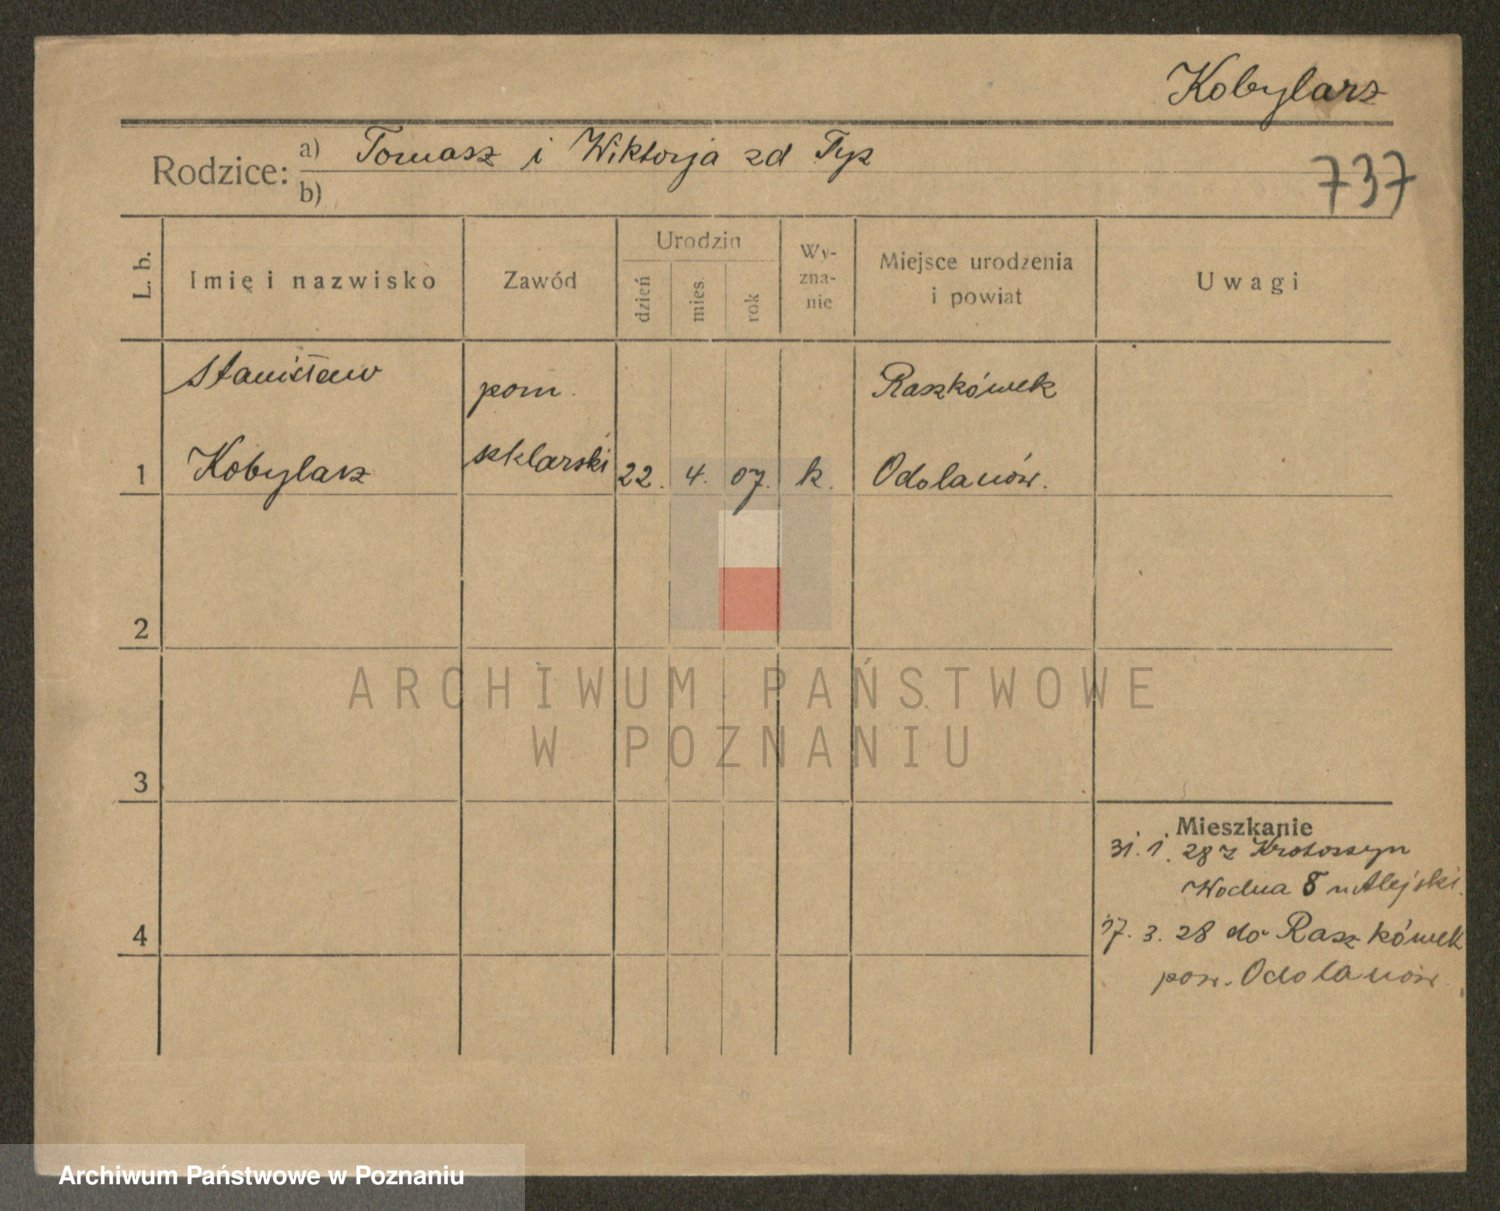 Kobylarz
Rodzice: a) Tomasz i Wiktorja zd Tyz
b)
737
L. b.
Imię i nazwisko
Zawód
Urodzin
dzień
mies.
rok
Wy-
zna-
nie
Miejsce urodzenia
i powiat
Uwagi
Stanisław
pom.
Raszkówek
1
Kobylarz
szklarski
22.
4.
07.
k.
Odolanów.
2
ARCHIWUM PAŃSTWOWE
W POZNANIU
3
Mieszkanie
31. 1. 28 z Krotoszyn
Wodna 8 u Alejski.
4
17. 3. 28 do Raszkówek
pow. Odolanów.
Archiwum Państwowe w Poznaniu